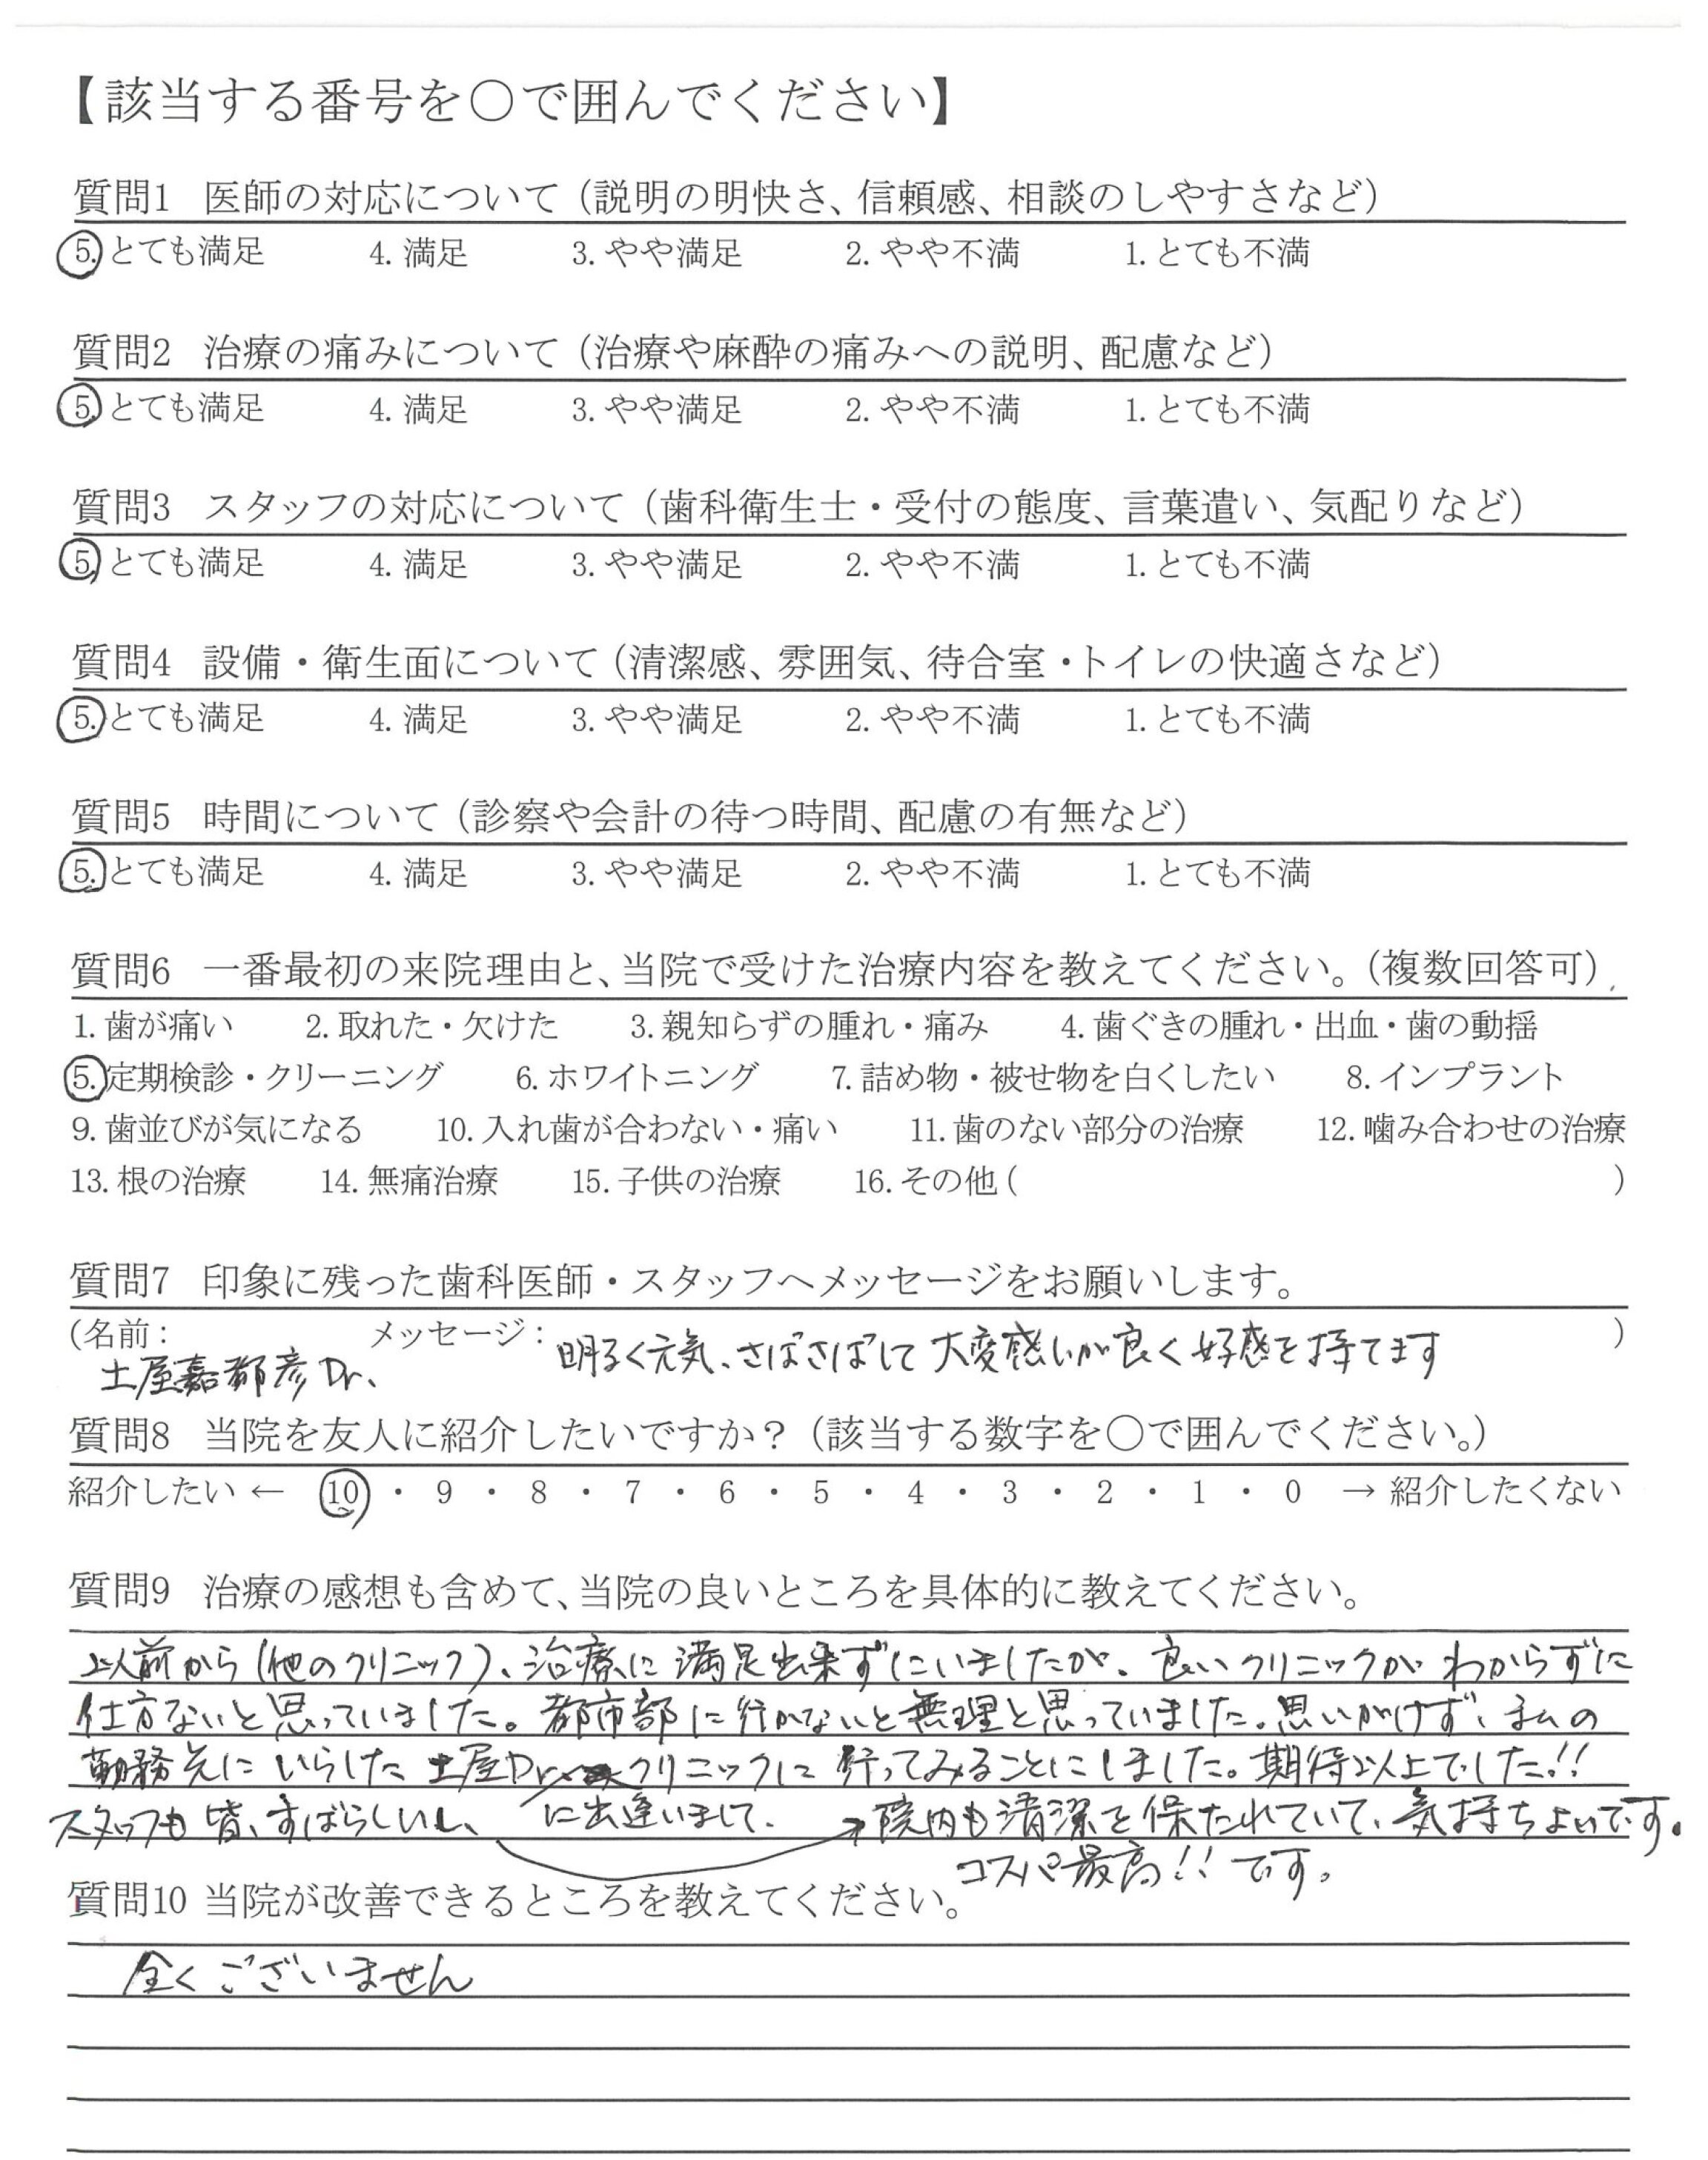 【該当する番号を〇で囲んでください】
質問1 医師の対応について（説明の明快さ、信頼感、相談のしやすさなど）
5. とても満足 4. 満足 3. やや満足 2. やや不満 1. とても不満
質問2 治療の痛みについて（治療や麻酔の痛みへの説明、配慮など）
5. とても満足 4. 満足 3. やや満足 2. やや不満 1. とても不満
質問3 スタッフの対応について（歯科衛生士・受付の態度、言葉遣い、気配りなど）
5. とても満足 4. 満足 3. やや満足 2. やや不満 1. とても不満
質問4 設備・衛生面について（清潔感、雰囲気、待合室・トイレの快適さなど）
5. とても満足 4. 満足 3. やや満足 2. やや不満 1. とても不満
質問5 時間について（診察や会計の待つ時間、配慮の有無など）
5. とても満足 4. 満足 3. やや満足 2. やや不満 1. とても不満
質問6 一番最初の来院理由と、当院で受けた治療内容を教えてください。（複数回答可）
1. 歯が痛い 2. 取れた・欠けた 3. 親知らずの腫れ・痛み 4. 歯ぐきの腫れ・出血・歯の動揺
5. 定期検診・クリーニング 6. ホワイトニング 7. 詰め物・被せ物を白くしたい 8. インプラント
9. 歯並びが気になる 10. 入れ歯が合わない・痛い 11. 歯のない部分の治療 12. 噛み合わせの治療
13. 根の治療 14. 無痛治療 15. 子供の治療 16. その他 ( )
質問7 印象に残った歯科医師・スタッフへメッセージをお願いします。
(名前： メッセージ： 明るく元気、さばさばして大変感じが良く好感を持てます )
土屋嘉都彦Dr、
質問8 当院を友人に紹介したいですか？（該当する数字を〇で囲んでください。）
紹介したい ← 10 ・ 9 ・ 8 ・ 7 ・ 6 ・ 5 ・ 4 ・ 3 ・ 2 ・ 1 ・ 0 → 紹介したくない
質問9 治療の感想も含めて、当院の良いところを具体的に教えてください。
以前から（他のクリニック）、治療に満足出来ずにいましたが、良いクリニックがわからずに
仕方ないと思っていました。都市部に行かないと無理と思っていました。思いがけず、私の
勤務先にいらした土屋Dr. クリニックに行ってみることにしました。期待以上でした!!
スタッフも皆、すばらしいし、 に出逢いまして、 →院内も清潔を保たれていて、気持ちよいです。
コスパ最高!!です。
質問10 当院が改善できるところを教えてください。
全くございません